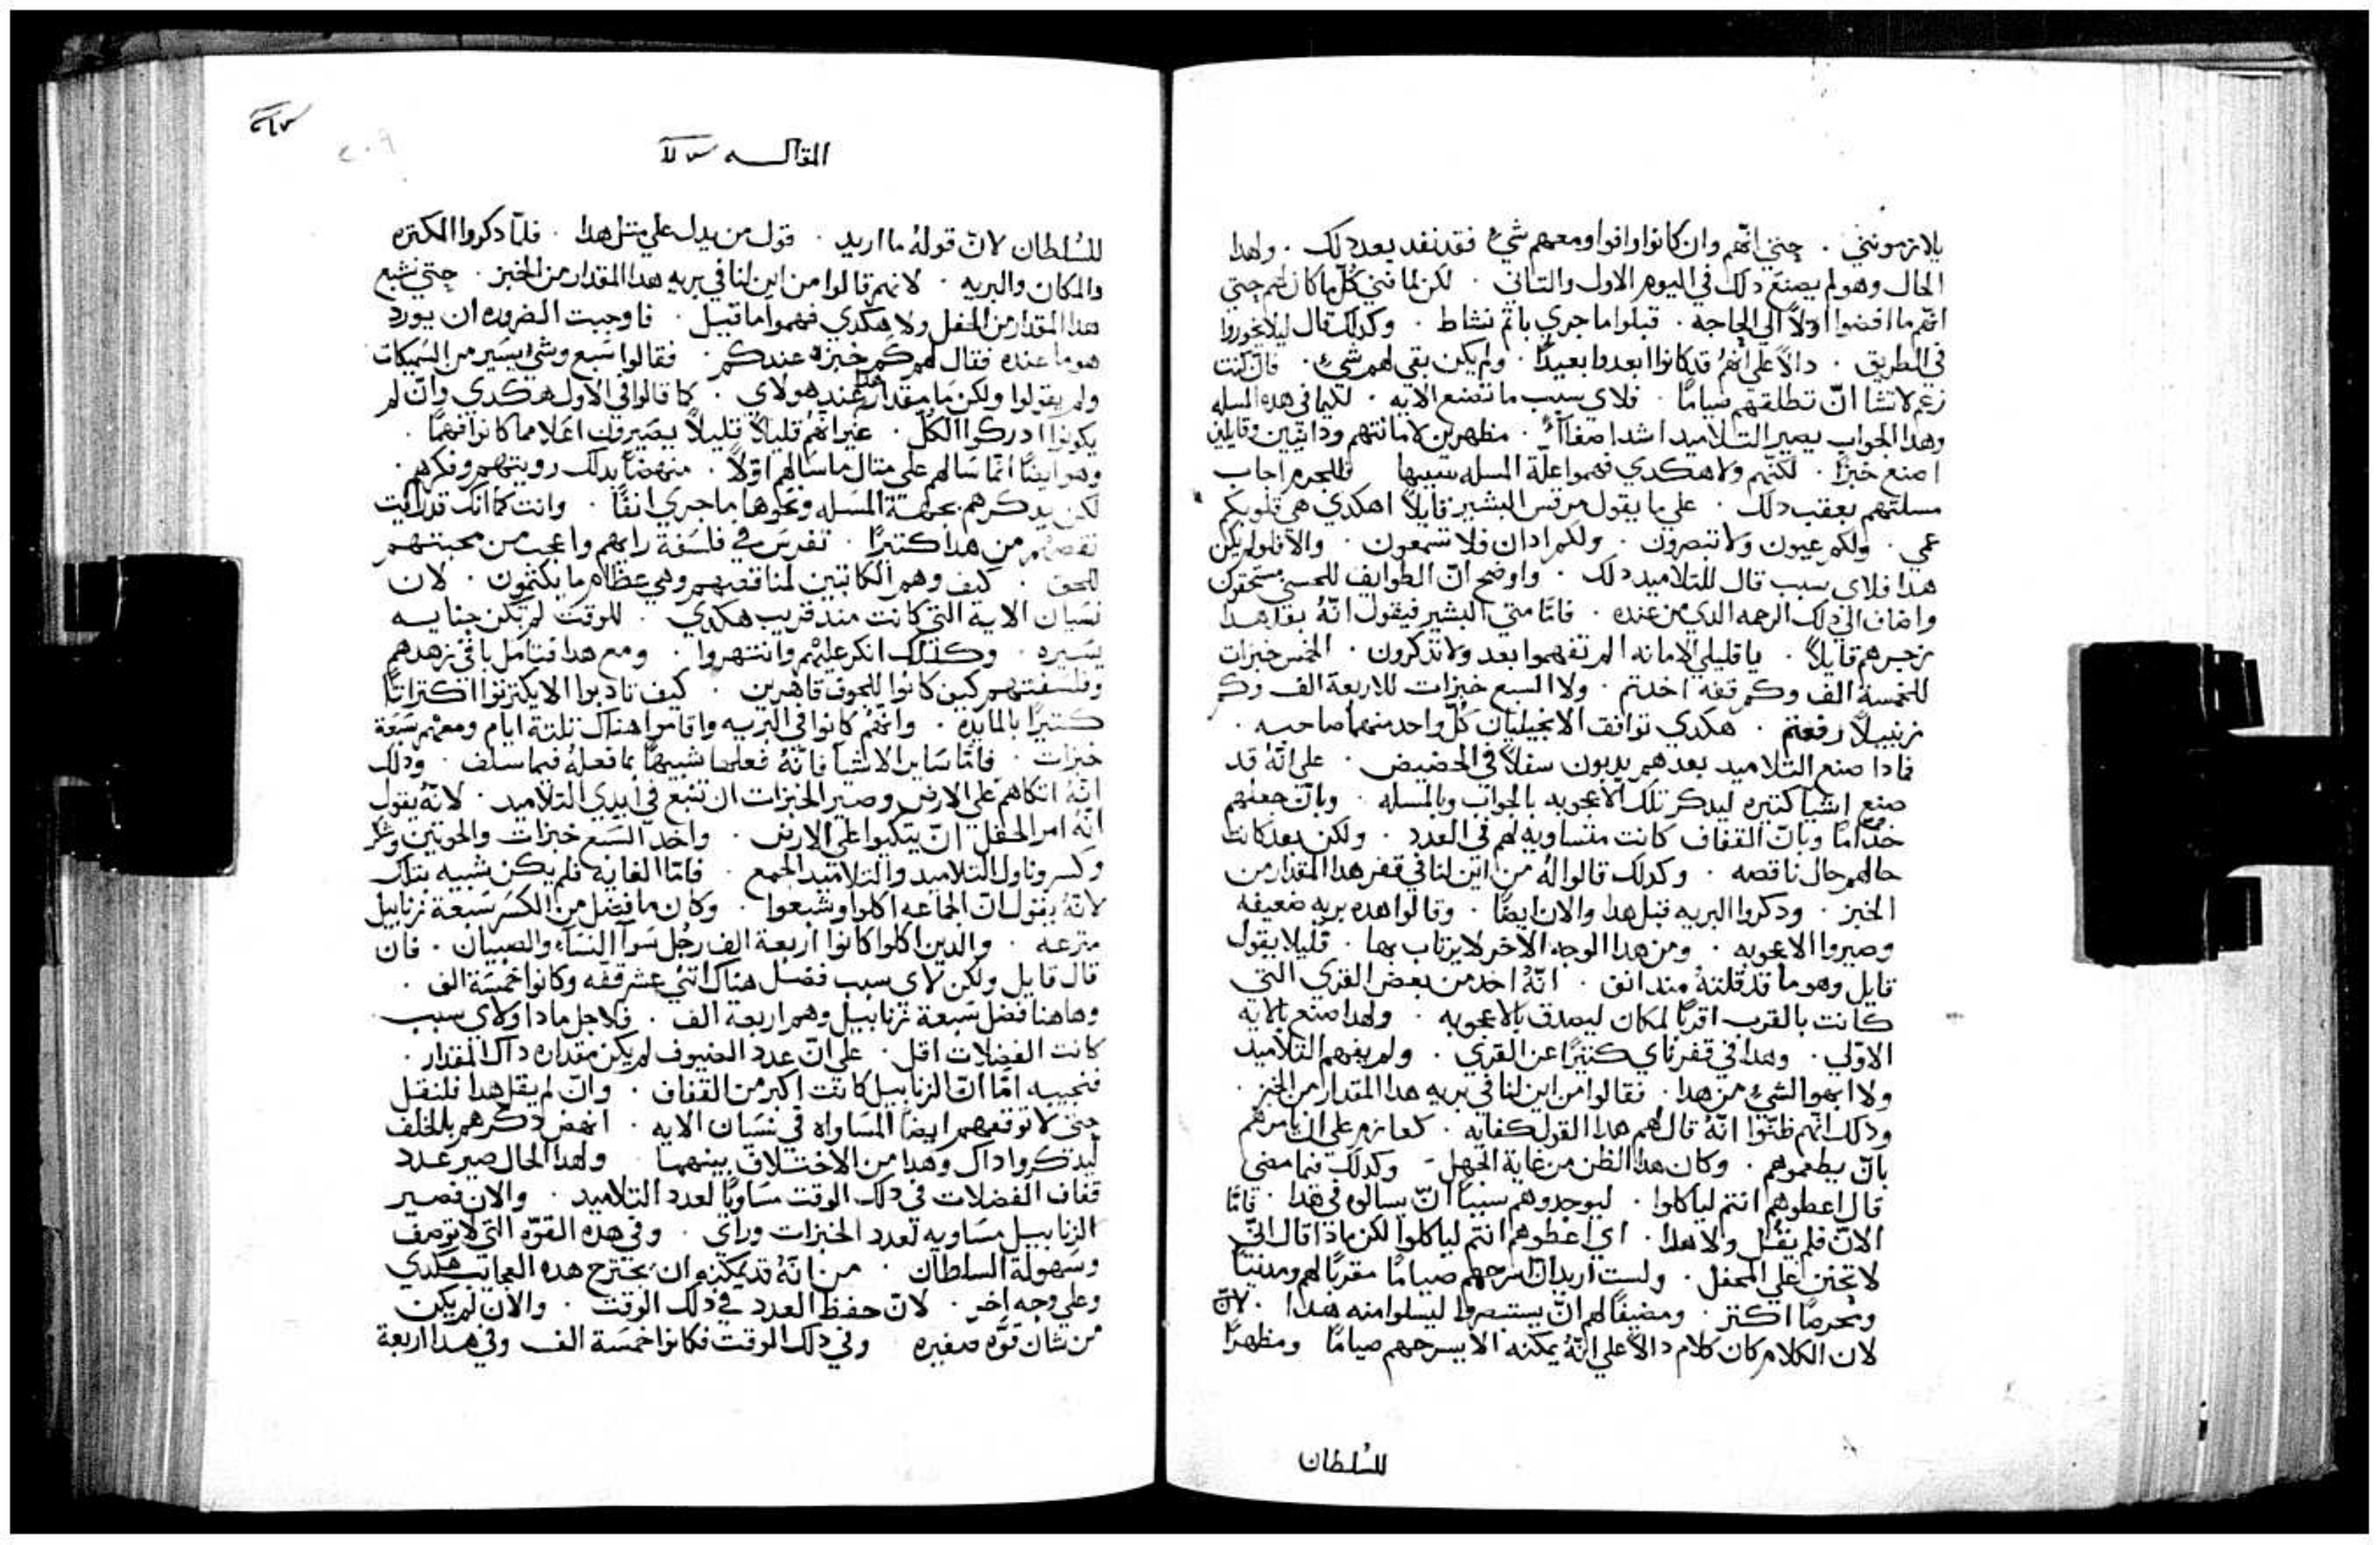 يلازمونني . حتي انهم وان كانوا وافوا ومعهم شيء فقد نفد بعد دلك . ولهدا
الحال وهو لم يصنع دلك في اليوم الاول والتاني . لكن لما فني كل ما كان لهم حتي
انهم ما افضوا اولاً الي الحاجه . قبلوا ما جري باتم نشاط . وكدلك قال ليلا يخوروا
في الطريق . دالاً علي انهم قد كانوا ابعدوا بعيداً . ولم يكن بقي لهم شيء . فان كنت
زعم لا تشا ان تطلقهم صياماً . فلاي سبب ما تصنع الايه . لكيما في هده المسله
وهدا الجواب يصير التلاميد اشد اصغآءً . مظهرين لامانتهم ودانيين وقايلين
اصنع خبزاً . لكنهم ولا هكدي فهموا علة المسله بسببها فللجرم اجاب
مسلتهم بعقب دلك . علي ما يقول مرقس البشير قايلاً اهكدي هي قلوبكم
عمي . ولكم عيون ولا تبصرون . ولكم ادان فلا تسمعون . والا فلو لم يكن
هدا فلاي سبب قال للتلاميد دلك . واوضح ان الطوايف للحسني مستحقون
واضاف الي دلك الرحمه الدي من عنده . فاما متي البشير فيقول انه بعد هدا
زجرهم قايلاً . يا قليلي الامانه الم تفهموا بعد ولا تدكرون . الخمس خبزات
للخمسة الف وكم قفه اخدتم . ولا السبع خبزات للاربعة الف وكم
زنبيلاً رفعتم . هكدي توافق الانجيليان كل واحد منهما صاحبه .
فمادا صنع التلاميد بعد هم يدبون سفلاً في الحضيض . علي انه قد
صنع اشيا كتيره ليدكر تلك الاعجوبه بالجواب وبالمسله . وبان جعلهم
خداماً وبان القفاف كانت متساويه لهم في العدد . ولكن بعد كانت
حالهم حال ناقصه . وكدلك قالوا له من اين لنا في قفر هدا المقدار من
الخبز . ودكروا البريه قبل هدا والان ايضاً . وقالوا هده بريه ضعيفه
وصيروا الاعجوبه . ومن هدا الوجه الاخر لا يرتاب بها . فليلا يقول
قايل وهو ما قد قلته مند انف . انه اخد من بعض القري التي
كانت بالقرب اقر بالمكان ليصدق بالاعجوبه . ولهدا صنع بالايه
الاولي . وهدا في قفر ناي كتيراً عن القري . ولم يفهم التلاميد
ولا ابهوا لشيء من هدا . فقالوا من اين لنا في بريه هدا المقدار من الخبز .
ودلك انهم ظنوا انه قال لهم هدا القول كفايه . كعازم علي ان يامرهم
بان يطعموهم . وكان هدا الظن من غاية الجهل . وكدلك فيما مضي
قال اعطوهم انتم لياكلوا . ليوجدوهم سبباً ان يسالوه في هدا . فاما
الان فلم يقل ولا هدا . اي اعطوهم انتم لياكلوا لكن مادا قال اني
لاتحنن علي المحفل . ولست اريد ان اسرحهم صياماً مقرباً لهم ومدنياً
ومحرصاً اكتر . ومضيفاً لهم ان يستبصروا ليسلوا منه هدا . لان
لان الكلام كان كلام دالاً علي انه يمكنه الا يسرحهم صياماً ومظهراً
للسلطان
المقالـــه
للسلطان لان قوله ما اريد . قول من يدل علي متل هدا . فلما دكروا الكتره
والمكان والبريه . لانهم قالوا من اين لنا في بريه هدا المقدار من الخبز . حتي نشبع
هدا المقدار من المحفل ولا هكدي فهموا ما قيل . فاوجبت الضروره ان يورد
هو ما عنده فقال لهم كم خبزه عندكم . فقالوا سبع وشيء يسير من السميكات
ولم يقولوا ولكن ما مقدار هدا عند هولاي . كما قالوا في الاول هكدي وان لم
يكونوا ادركوا الكل . غير انهم قليلاً قليلاً يصيرون اعلا مما كانوا فهماً .
وهو ايضاً انما سالهم علي متال ما سالهم اولاً . منهضاً بدلك رويتهم وفكرهم .
لكن يدكرهم بجهة المسله ونحوها بما جري انفاً . وانت كما انك قد رايت
نقصهم من هدا كتيراً . تفرس في فلسفة رايهم واعجب من محبتهم
للحق . كيف وهم الكاتبين لمناقصهم وهي عظام ما يكتمون . لان
نسيان الاية التي كانت مند قريب هكدي . للوقت لم تكن جنايه
يسيره . وكدلك انكر عليهم وانتهروا . ومع هدا فتامل باقي زهدهم
وفلسفتهم كيف كانوا للجوف قاهرين . كيف تادبوا الا يكترتوا اكتراتاً
كتيراً بالمايده . وانهم كانوا في البريه واقاموا هناك تلتة ايام ومعهم سبعة
خبزات . فاما ساير الاشيا فانه فعلها شبيهاً بما فعله فيما سلف . ودلك
انه اتكاهم علي الارض وصير الخبزات ان تنبع في ايدي التلاميد . لانه يقول
انه امر الحفل ان يتكيوا علي الارض . واخد السبع خبزات والحوتين وشكر
وكسر وناول التلاميد والتلاميد الجمع . فاما الغايه فلم يكن شبيه بتلك
لانه يقول ان الجماعه اكلوا وشبعوا . وكان ما فضل من الكسر سبعة زنابيل
مترعه . والدين اكلوا كانوا اربعة الف رجل سوآ النسآء والصبيان . فان
قال قايل ولكن لاي سبب فضل هناك اتني عشر قفه وكانوا خمسة الف .
وهاهنا فضل سبعة زنابيل وهم اربعة الف . فلاجل مادا ولاي سبب
كانت الفضلات اقل . علي ان عدد الضيوف لم يكن مقداره داك المقدار .
فنجيبه اما ان الزنابيل كانت اكبر من القفاف . وان لم يقل هدا فلنقل
حتي لا توقعهم ايضاً المساواه في نسيان الايه . انهض دكرهم بالخلف
ليدكروا داك وهدا من الاختلاف بينهما . ولهدا الحال صير عدد
قفاف الفضلات في دلك الوقت مساوياً لعدد التلاميد . والان فصير
الزنابيل مساويه لعدد الخبزات وراي . وفي هده القوه التي لا توصف
وسهولة السلطان . من انه قد يمكنه ان يجترح هده العجايب هكدي
وعلي وجه اخر . لان حفظ العدد في دلك الوقت . والان لم يكن
من شان قوه صغيره وفي دلك الوقت فكانوا خمسة الف وفي هدا اربعة